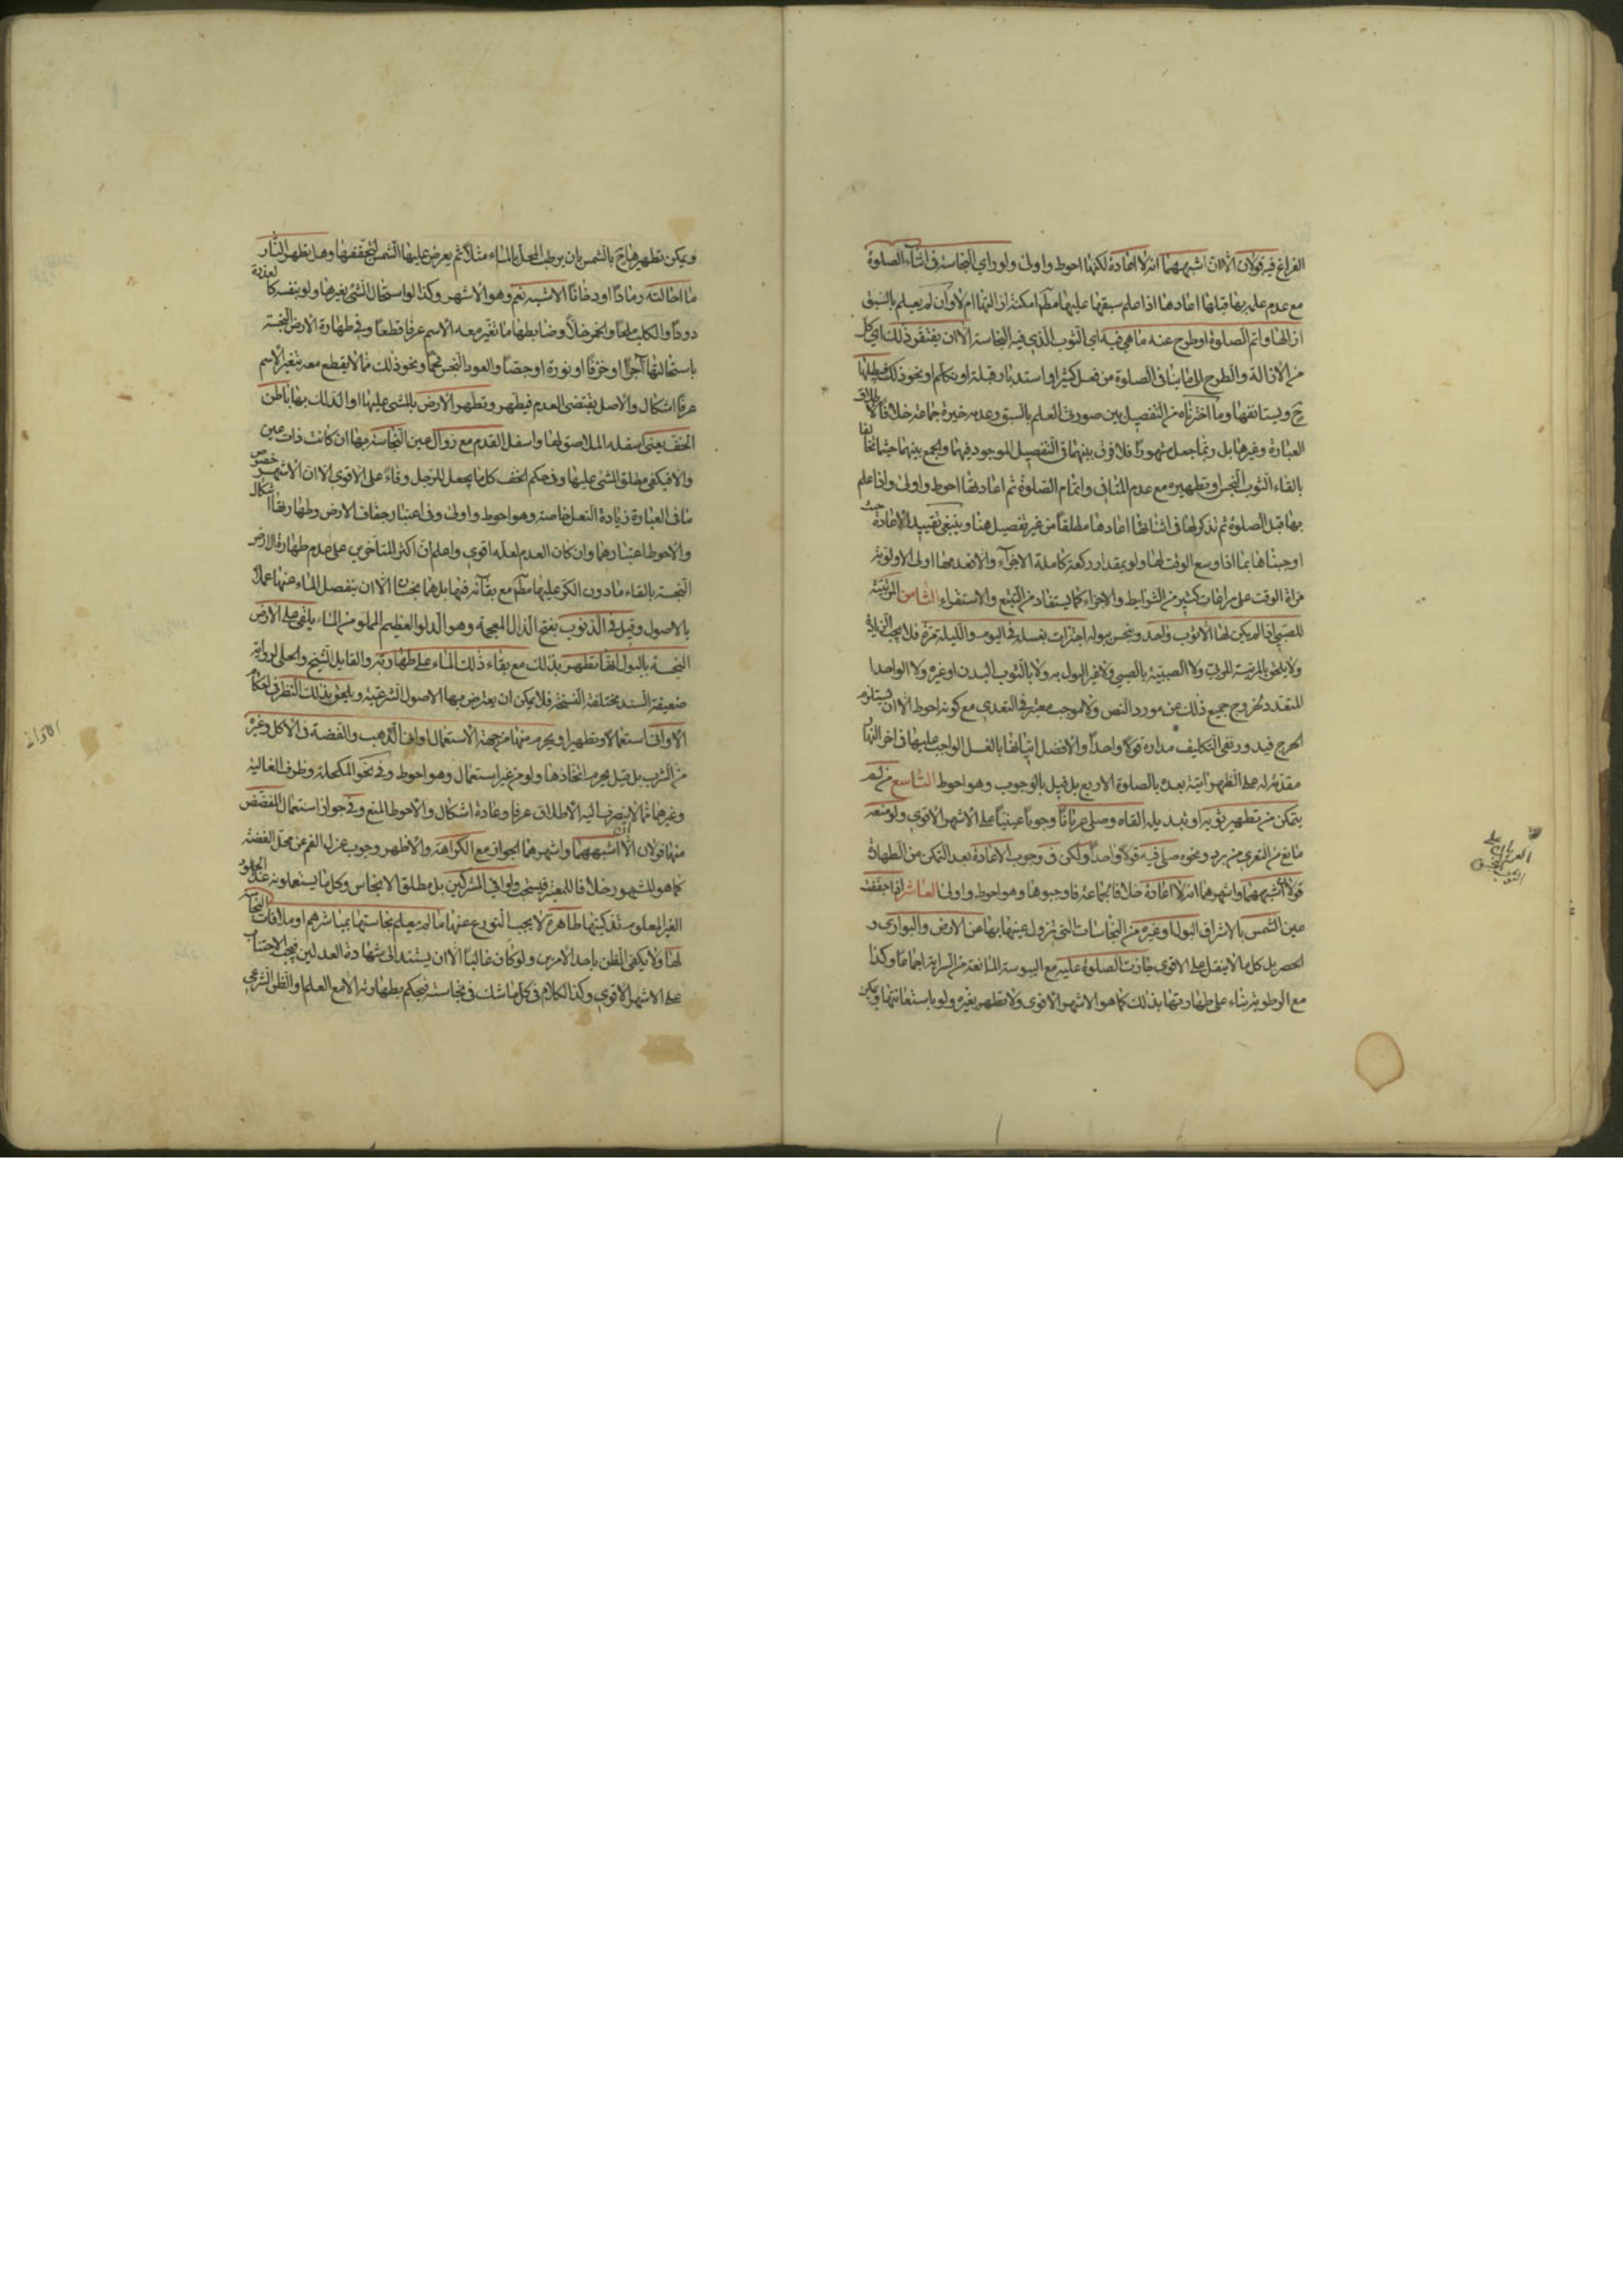 الفراغ فيه قولان الا ان اشبههما انه لا اعادة لكنها احوط واولى ولو راى النجاسة فى اثناء الصلوة
مع عدم علمه بها قبلها اعادها اذا علم سبقها عليها مطلقا امكنه ازالتها ام لا وان لم يعلم بالسبق
ازالها واتم الصلوة او طرح عنه ما هى فيه اى الثوب الذى فيه النجاسة الا ان يفتقر ذلك اى كل
من الازالة والطرح الى ما ينافى الصلوة من فعل كثير او استدبار قبلة او تكلم او نحو ذلك فيبطلها
ح ويستانفها وما اخترناه من التفصيل بين صورتى العلم بالسبق وعدمه خيرة جماعة خلافا لاطلاق
العبارة وغيرها بل ربما جعل مشهورا فلا فرق بينهما فى التفصيل الموجود فيها والجمع بينهما
بالقاء الثوب النجس او تطهيره مع عدم المنافى واتمام الصلوة ثم اعادتها احوط واولى واذا علم
بها قبل الصلوة ثم تذكرها فى اثنائها اعادها مطلقا من غير تفصيل هنا وينبغى تقييد الاعادة حيث
اوجبناها بما اذا وسع الوقت لها ولو بمقدار ركعة كاملة الاجزاء والا فعدمها اولى لاولوية
مراعاة الوقت على مراعات كثير من الشرايط والاجزاء كما يستفاد من التتبع والاستقراء الثامن المربية
للصبى اذا لم يكن لها الا ثوب واحد وينجس ببوله اجتزات بغسله فى اليوم والليلة مرة فلا يجب الزيادة
ولا يلحق بالمربية المربى ولا الصبية بالصبى ولا غير البول به ولا بالثوب البدن او غيره ولا الواحد
المتعدد لخروج جميع ذلك عن مورد النص ولا موجب معتبر فى التعدى مع كونه احوط الا ان يستلزم
الحرج فيدور نفى التكليف مداره قولا واحدا والافضل اتيانها بالغسل الواجب عليها فى اخر النهار
مقدمة له على الظهر اتية بعده بالصلوة الاربع بل قيل بالوجوب وهو احوط التاسع من لم
يتمكن من تطهير ثوبه او تبديله القاه وصلى عريانا وجوبا عينيا على الاشهر الاقوى ولو منعه
مانع من التعرى من برد ونحوه صلى فيه قولا واحدا ولكن فى وجوب الاعادة بعد التمكن من الطهارة
قولان اشبههما واشهرهما انه لا اعادة خلافا لجماعة فاوجبوها وهو احوط واولى العاشر اذا جففت
عين الشمس بالاشراق البول او غيره من النجاسات التى تزول عينها بها عن الارض والبوارى و
الحصر بل كل ما لا ينقل على الاقوى جازت الصلوة عليه مع اليبوسة المانعة من السراية اجماعا وكذا
مع الرطوبة بناء على طهارتها بذلك كما هو الاشهر الاقوى ولا تطهر بغيره ولو باستعانتها ويمكن
ويمكن تطهيرها ح بالشمس بان يرطب المحل بالماء مثلا ثم يعرض عليها الشمس لتجففها وهل يطهر النار
ما احالته رمادا او دخانا الاشبه نعم وهو الاشهر وكذا لو استحال الشى بغيرها ولو بنفسه كالعذرة
دودا والكلب ملحا والخمر خلا وضابطها ما تغير معه الاسم عرفا قطعا وفى طهارة الارض النجسة
باستحالتها آجرا او خزفا او نورة او جصا والعود النجس فحما ونحو ذلك مما لا يقطع معه بتغير الاسم
عرفا اشكال والاصل يقتضى العدم فيطهر وتطهر الارض بالمشى عليها او الدلك بها باطن
الخف يعنى اسفله الملاصق لها واسفل القدم مع زوال عين النجاسة بها ان كانت ذات عين
والا فيكفى مطلق المشى عليها وفى حكم الخف كل ما يجعل للرجل وقاء على الاقوى الا ان الاشهر خصوص
ما فى العبارة بزيادة النعل خاصة وهو احوط واولى وفى اعتبار جفاف الارض وطهارتها اشكال
والاحوط اعتبارهما وان كان العدم لعله اقوى واعلم ان اكثر المتاخرين على عدم طهارة الارض
النجسة بالقاء ما دون الكر عليها مطلقا مع بقائه فيها بل هما نجسان الا ان ينفصل الماء عنها عملا
بالاصول وقيل فى الذنوب بفتح الذال المعجمة وهو الدلو العظيم المملو من الماء يلقى على الارض
النجسة بالبول انها تطهر بذلك مع بقاء ذلك الماء على طهارته والقايل الشيخ والحلى لرواية
ضعيفة السند مختلفة النسخة فلا يمكن ان يعترض بها الاصول الشرعية ويلحق بذلك النظر فى احكام
الاوانى استعمالا وتطهيرا ويحرم منها من جهة الاستعمال اوانى الذهب والفضة فى الاكل وغيره
من الشرب بل قيل يحرم اتخاذها ولو من غير استعمال وهو احوط وفى نحو المكحلة وظرف الغالية
وغيرهما مما لا ينصرف اليه الاطلاق عرفا وعادة اشكال والاحوط المنع وفى جواز استعمال المفضض
منها قولان الا ان اشبههما واشهرهما الجواز مع الكراهة والاظهر وجوب عزل الفم عن محل الفضة
كما هو المشهور خلافا للمعتبر فيستحب واوانى المشركين بل مطلق الانجاس وكل ما يستعملونه عدا الجلود
الغير المعلومة تذكيتها طاهرة لا يجب التورع عنها ما لم يعلم نجاستها بمباشرهم او ملاقات النجاسة
لها ولا يكفى الظن باحد الامرين ولو كان غالبا الا ان يستند الى شهادة العدلين فيجب الاجتناب
على الاشهر الاقوى وكذا الكلام فى كل ما شك فى نجاسته فيحكم بطهارته الا مع العلم او الظن الشرعى